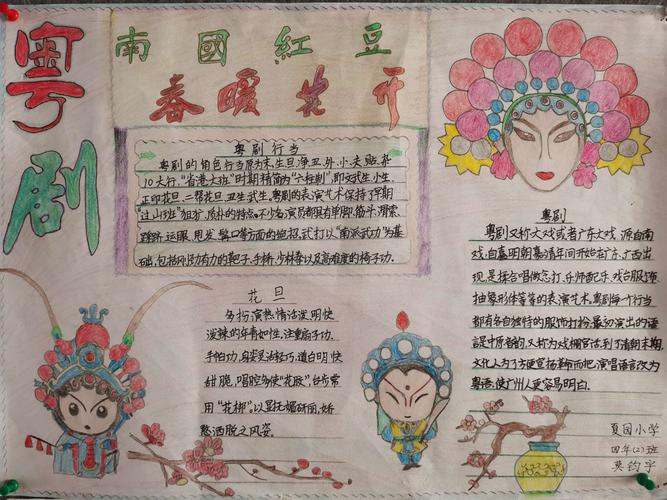 粤剧
南國紅豆
春暖花开
粤剧行当
粤剧的角色行当原为末、生、旦、净、丑、外、小、夫、贴、杂
10大行。"省港大班"时期精简为"六柱制",即武生、小生、
正印花旦、二帮花旦、丑生、武生。粤剧的表演艺术保持了早期
"过山班"粗犷、质朴的特点。不少名演员都具有单脚、筋斗、滑索、
踏跷、运眼、甩发、髯口等方面的绝招。武打以"南派武功"为基
础,包括刚劲有力的靶子、手桥、少林拳以及高难度的椅子功。
花旦
多扮演热情活泼、明快
泼辣的年青女性,注重扇子功、
手帕功,身姿灵活轻巧,道白明快
甜脆,唱腔多使"花腔",台步常
用"花梆",以显妩媚研丽、娇
憨洒脱之风姿。
粤剧
粤剧又称大戏或者广东大戏,源自南
戏,自嘉明朝嘉靖年间开始在广、广西出
现,是揉合唱做念打、乐师配乐、戏台服饰、
抽象形体等等的表演艺术。粤剧每个行当
都有各自独特的服饰打扮。最初演出的语
言是中原音韵,又称为戏棚官话。到了清朝末期,
文化人为了方便宣扬革命而把演唱语言改为
粤语,使广州人更容易明白。
夏园小学
四年(2)班